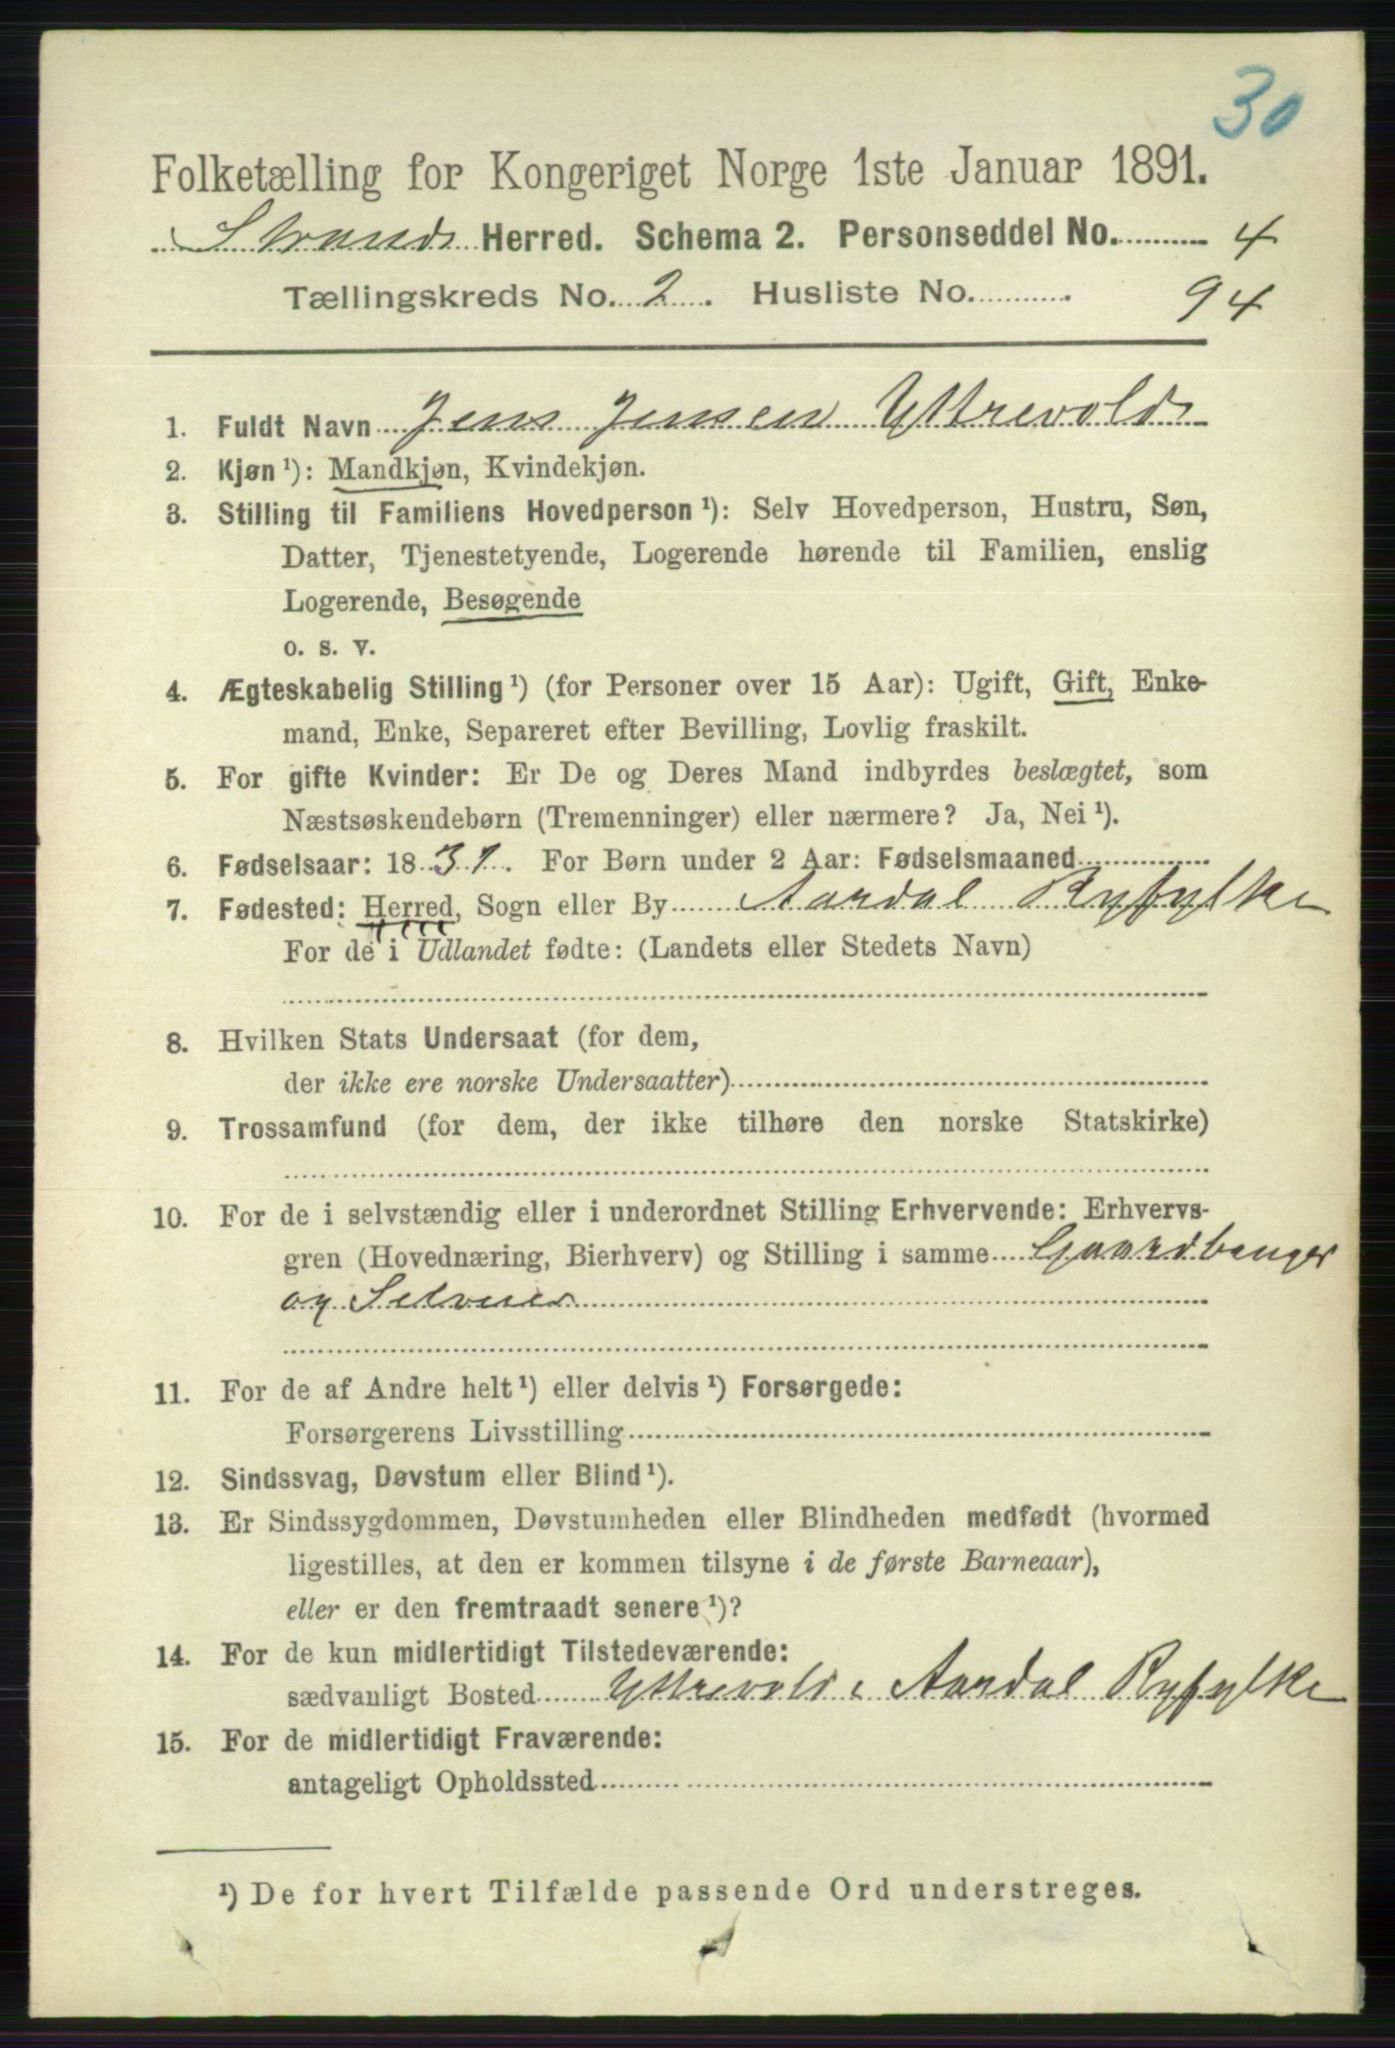 30
Folketælling for Kongeriget Norge 1ste Januar 1891.
Strands Herred. Schema 2. Personseddel No. 4
Tællingskreds No. 2. Husliste No. 94
1. Fuldt Navn Jens Jensen Yttrevold
2. Kjøn ¹): Mandkjøn, Kvindekjøn.
3. Stilling til Familiens Hovedperson ¹): Selv Hovedperson, Hustru, Søn,
Datter, Tjenestetyende, Logerende hørende til Familien, enslig
Logerende, Besøgende
o. s. v.
4. Ægteskabelig Stilling ¹) (for Personer over 15 Aar): Ugift, Gift, Enke-
mand, Enke, Separeret efter Bevilling, Lovlig fraskilt.
5. For gifte Kvinder: Er De og Deres Mand indbyrdes beslægtet, som
Næstsøskendebørn (Tremenninger) eller nærmere? Ja, Nei ¹).
6. Fødselsaar: 1831. For Børn under 2 Aar: Fødselsmaaned
7. Fødested: Herred, Sogn eller By Aardal Ryfylke
For de i Udlandet fødte: (Landets eller Stedets Navn)
8. Hvilken Stats Undersaat (for dem,
der ikke ere norske Undersaatter)
9. Trossamfund (for dem, der ikke tilhøre den norske Statskirke)
10. For de i selvstændig eller i underordnet Stilling Erhvervende: Erhvervs-
gren (Hovednæring, Bierhverv) og Stilling i samme Gaardbruger
og Selveier
11. For de af Andre helt ¹) eller delvis ¹) Forsørgede:
Forsørgerens Livsstilling
12. Sindssvag, Døvstum eller Blind ¹).
13. Er Sindssygdommen, Døvstumheden eller Blindheden medfødt (hvormed
ligestilles, at den er kommen tilsyne i de første Barneaar),
eller er den fremtraadt senere ¹)?
14. For de kun midlertidigt Tilstedeværende:
sædvanligt Bosted Yttrevold i Aardal Ryfylke
15. For de midlertidigt Fraværende:
antageligt Opholdssted
¹) De for hvert Tilfælde passende Ord understreges.